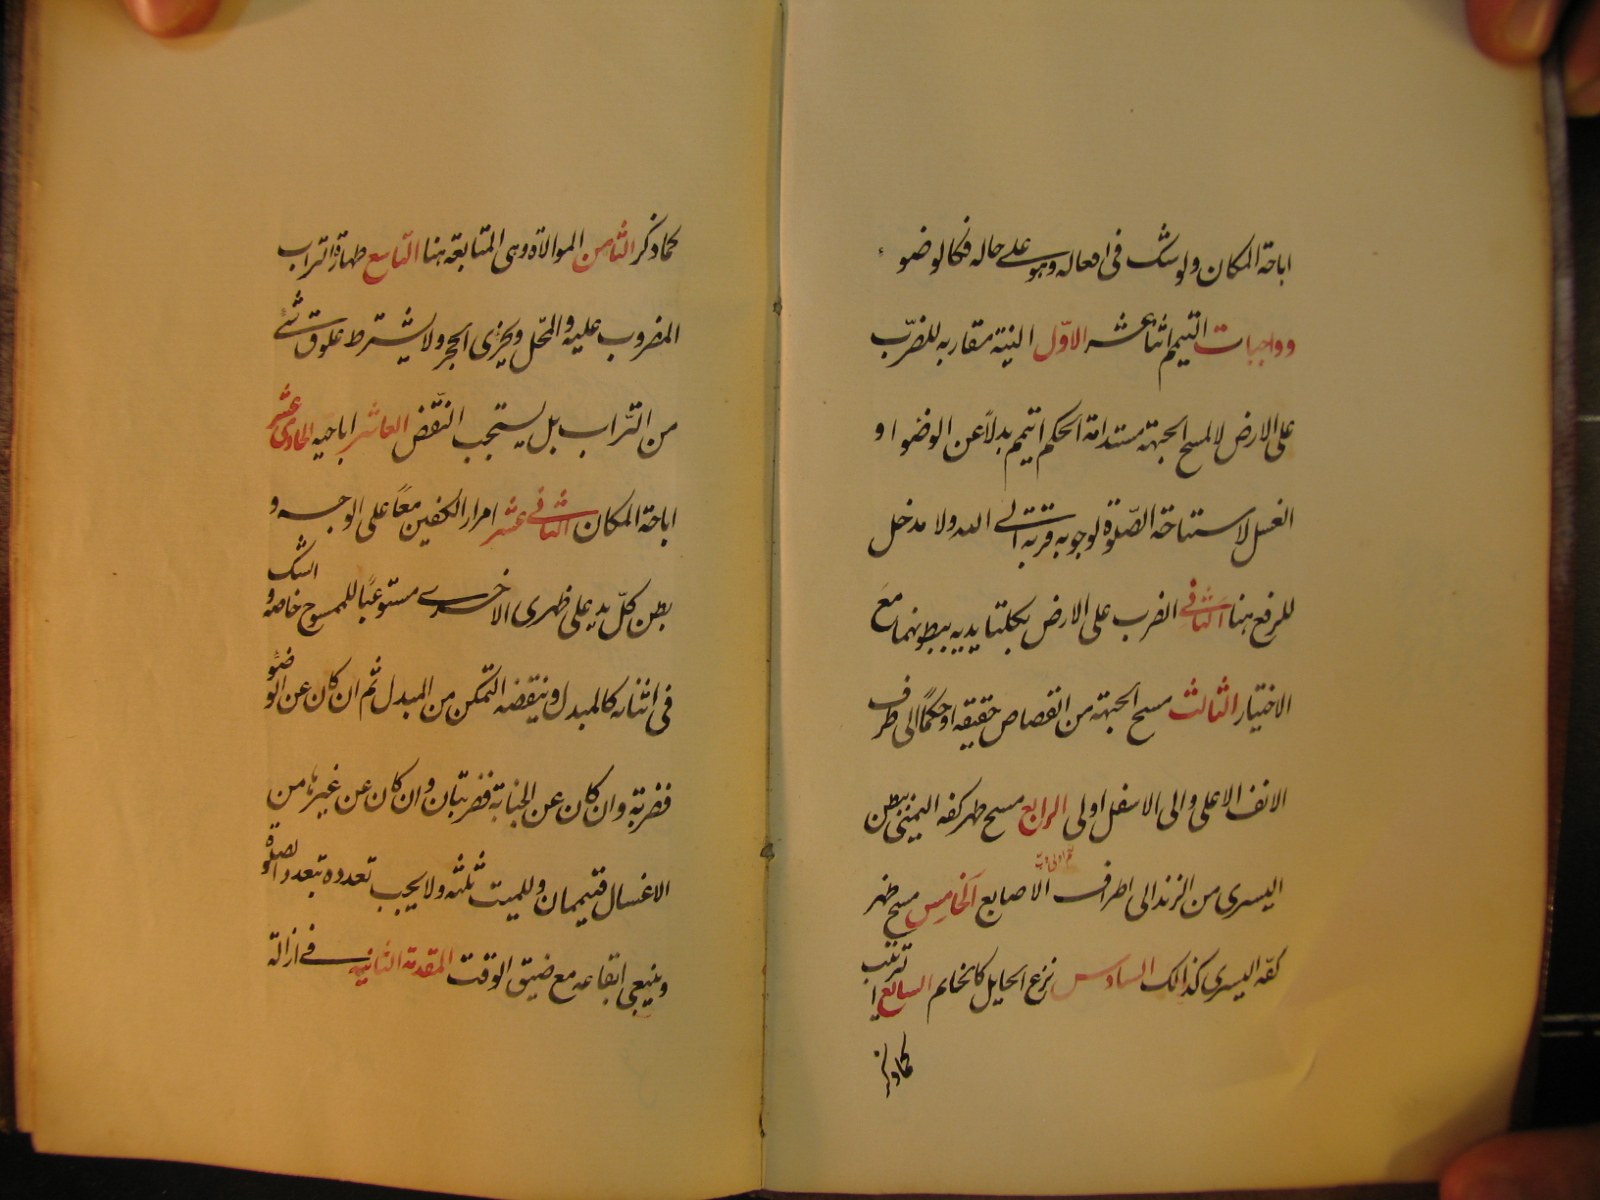 اباحة المكان ولو شك فى افعاله وهو على حاله فكالوضوء
وواجبات التيمم اثنا عشر الاوّل النية مقاربه للضّرب
على الارض لا لمسح الجبهة مستدامة الحكم اتيمم بدلاً عن الوضوء او
الغسل لاستباحة الصّلوة لوجوبه قربة الى الله ولا مدخل
للرفع هنا الثانى الضرب على الارض بكلتا يديه ببطونهما مع
الاختيار الثالث مسح الجبهة من القصاص حقيقه او حكماً الى طرف
الانف الاعلى والى الاسفل اولى الرابع مسح ظهر كفه اليمنى ببطن
اليسرى من الزند الى اطراف الاصابع الخامس مسح ظهر
كفّه اليسرى كذالك السادس نزع الحايل كالخاتم السابع الترتيب
كما ذكر
كما ذكر الثامن الموالاة وهى المتابعة هنا التاسع طهارة التراب
المضروب عليه والمحّل ويجزى الحجر ولا يشترط علوق شئ
من التّراب بل يستحب النّفض العاشر اباحته الحادى عشر
اباحة المكان الثانى عشر امرار الكفين معاً على الوجه و
بطن كلّ يد على ظهرى الاخرى مستوعبًا للممسوح خاصه والشك
فى اثنائه كالمبدل وينقضه التمكن من المبدل ثم ان كان عن الوضوء
فضربة وان كان عن الجنابة فضربتان وان كان عن غيرها من
الاغسال فتيممان وللميت ثلثه ولا يجب تعدده بتعدد الصلوة
وينبغى ايقاعه مع ضيق الوقت المقدمة الثانيه فى ازالة